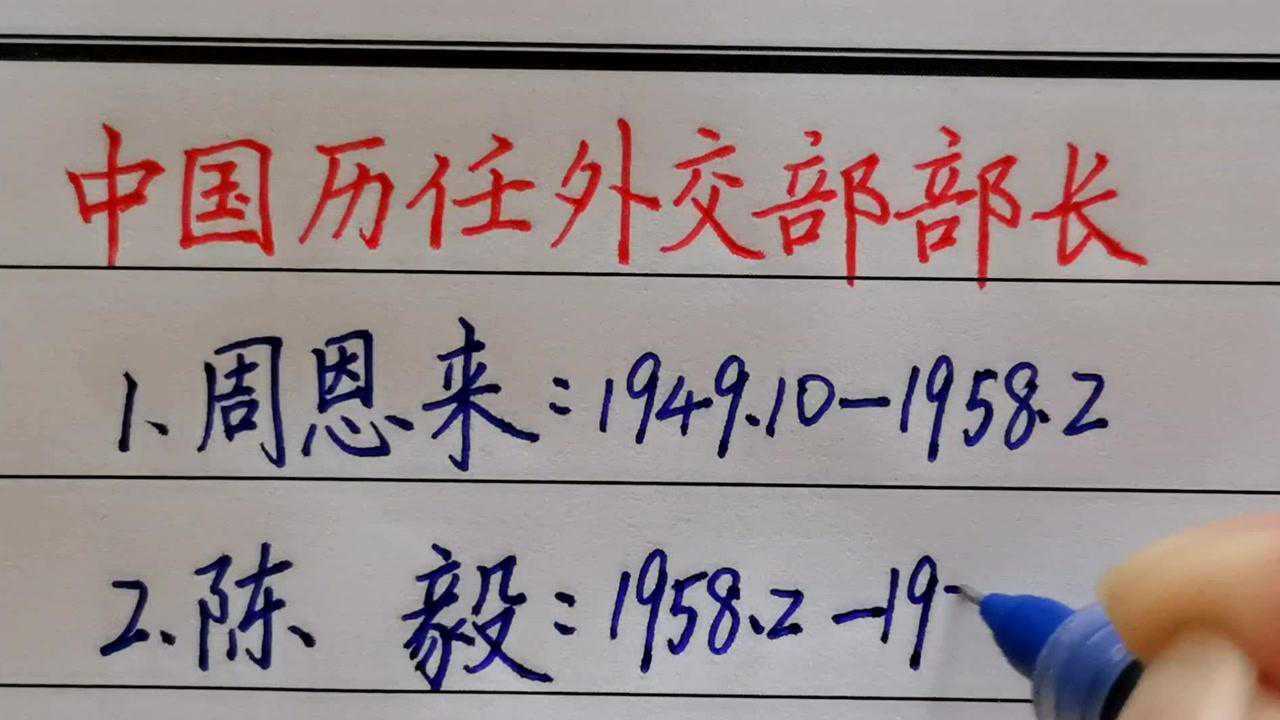 中国历任外交部部长
1、周恩来：1949.10-1958.2
2、陈 毅：1958.2-19